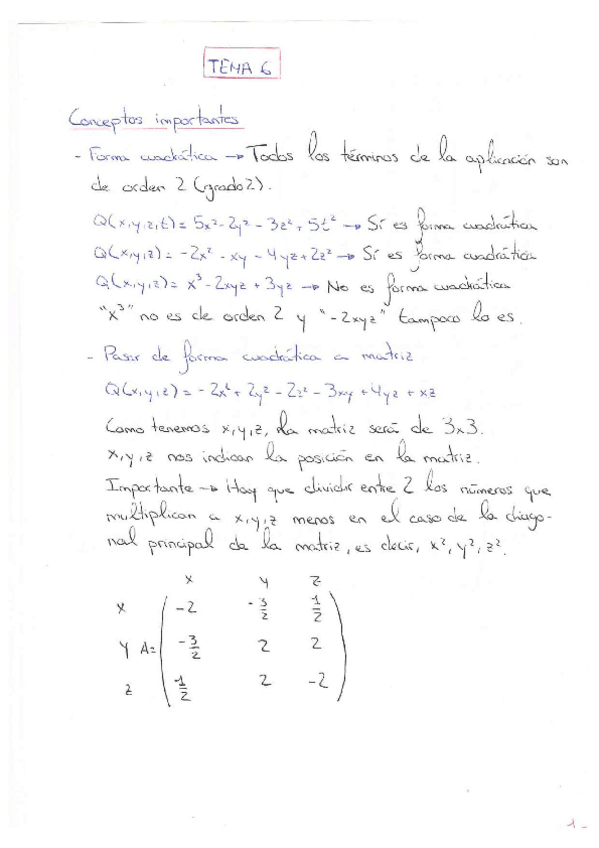 TEMA 6
Conceptos importantes
- Forma cuadrática → Todos los términos de la aplicación son
de orden 2 (grado 2).
Q(x,y,z,t) = 5x² - 2y² - 3z² + 5t² → Sí es forma cuadrática
Q(x,y,z) = -2x² - xy - 4yz + 2z² → Sí es forma cuadrática
Q(x,y,z) = x³ - 2xyz + 3yz → No es forma cuadrática
"x³" no es de orden 2 y "-2xyz" tampoco lo es.
- Pasar de forma cuadrática a matriz
Q(x,y,z) = -2x² + 2y² - 2z² - 3xy + 4yz + xz
Como tenemos x,y,z, la matriz será de 3x3.
x,y,z nos indican la posición en la matriz.
Importante → Hay que dividir entre 2 los números que
multiplican a x,y,z menos en el caso de la diago-
nal principal de la matriz, es decir, x², y², z².
x y z
x -2 -3/2 1/2
y A= -3/2 2 2
z 1/2 2 -2
1-